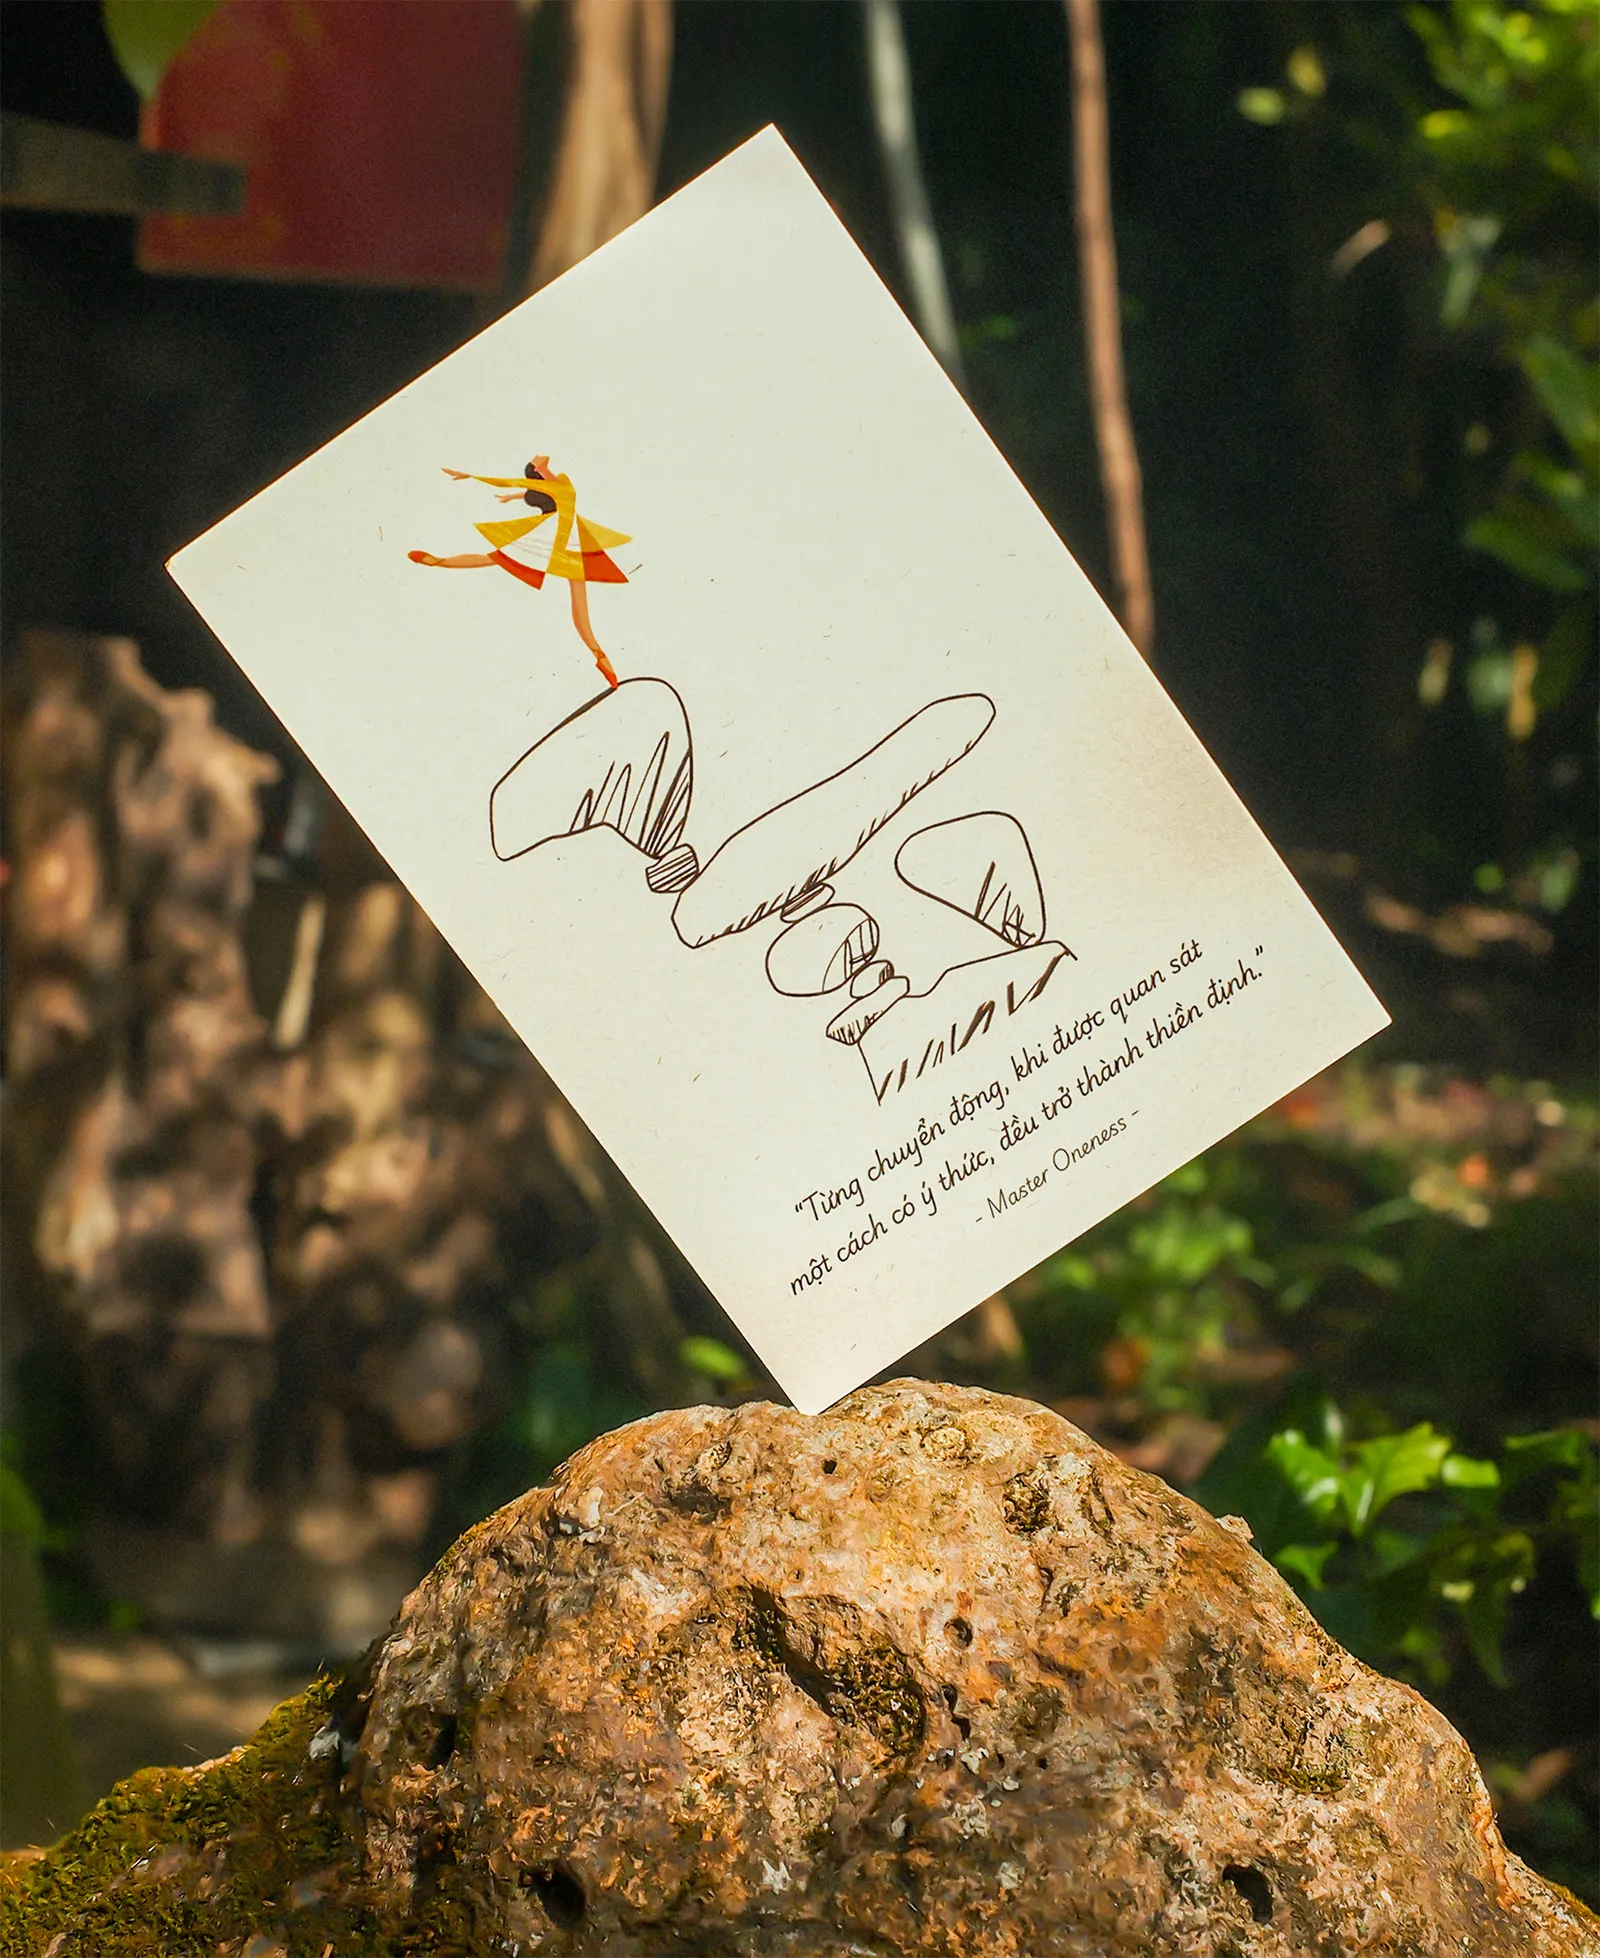 "Từng chuyển động, khi được quan sát
một cách có ý thức, đều trở thành thiền định."
- Master Oneness -